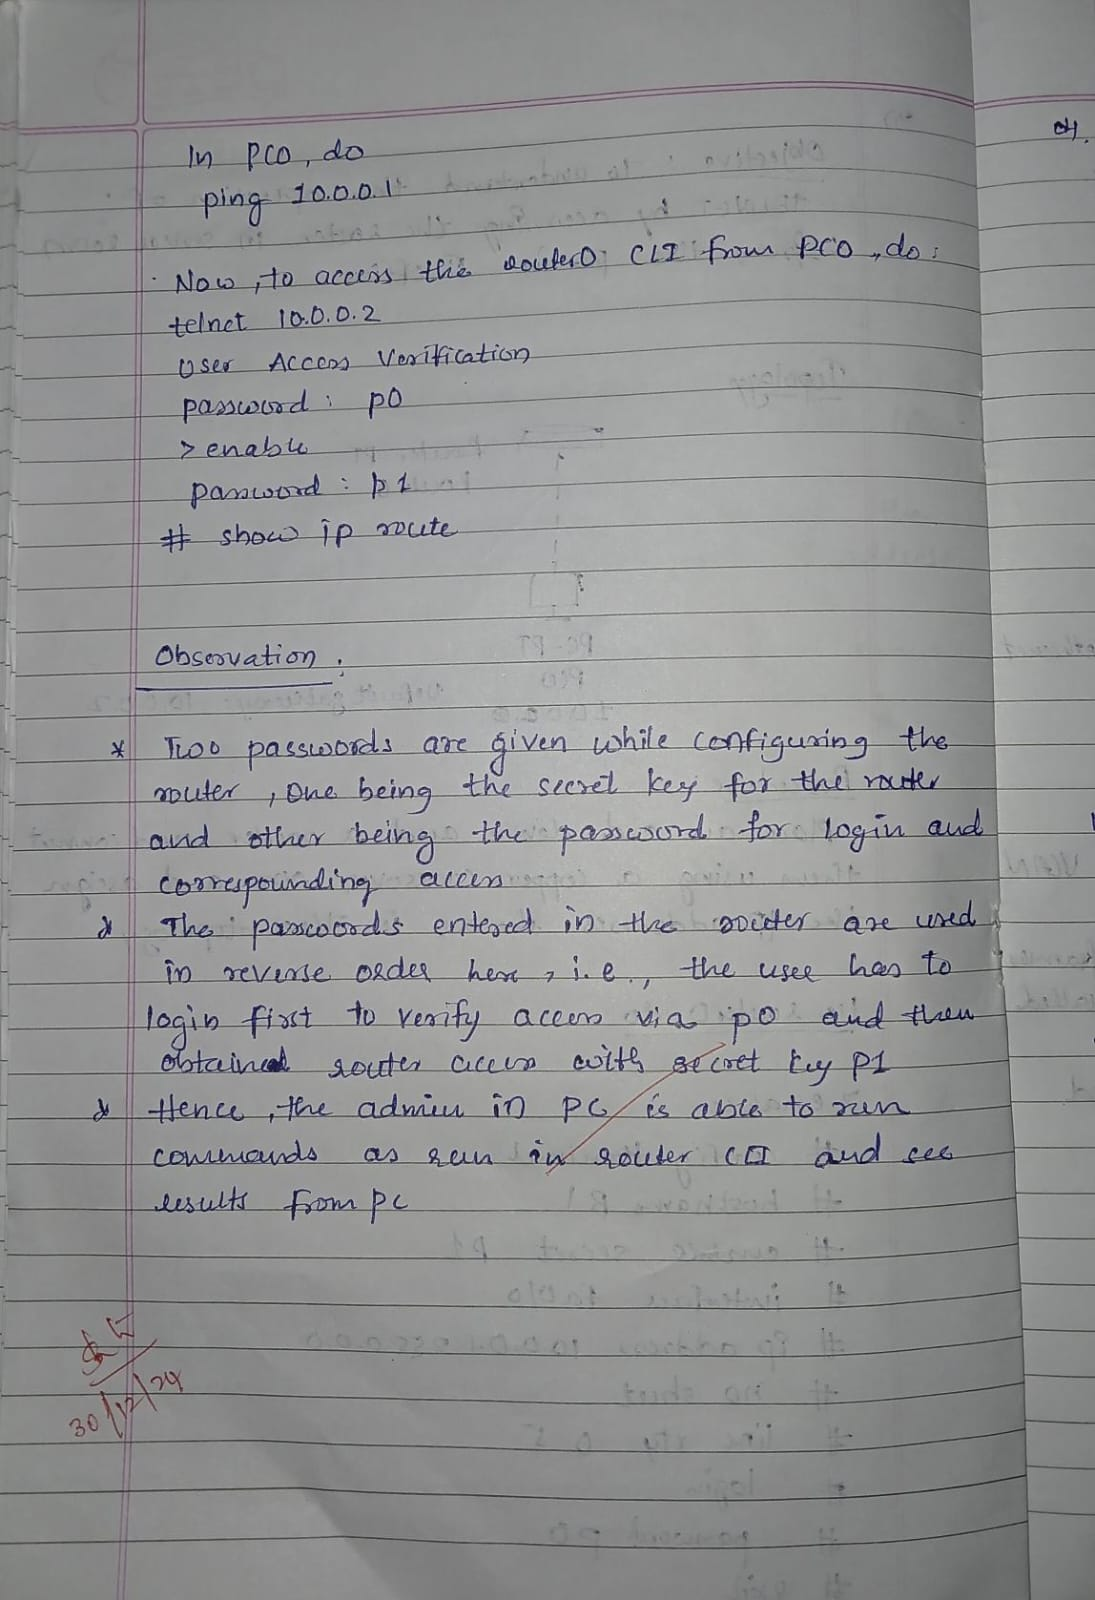 In PC0, do
ping 10.0.0.1
Now, to access the router0 CLI from PC0, do:
telnet 10.0.0.2
User Access Verification
password: p0
> enable
password: p1
# show ip route
Observation:
* Two passwords are given while configuring the
router, one being the secret key for the router
and other being the password for login and
correspounding access
* The passwords entered in the router are used
in reverse order here, i.e., the user has to
login first to verify access via p0 and then
obtained router access with secret key p1
* Hence, the admin in PC is able to run
commands as run in router CLI and see
results from PC
30/12/24